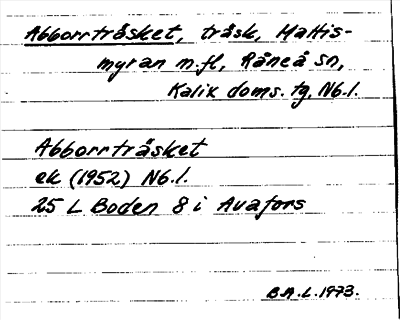 Abborrträsket, träsk, Mattis-
myran m.fl, Råneå sn,
Kalix doms. tg, Nb.l.
Abborrträsket
ek (1952) Nb.l.
25 L Boden 8 i Avafors
B.A.L.1973.